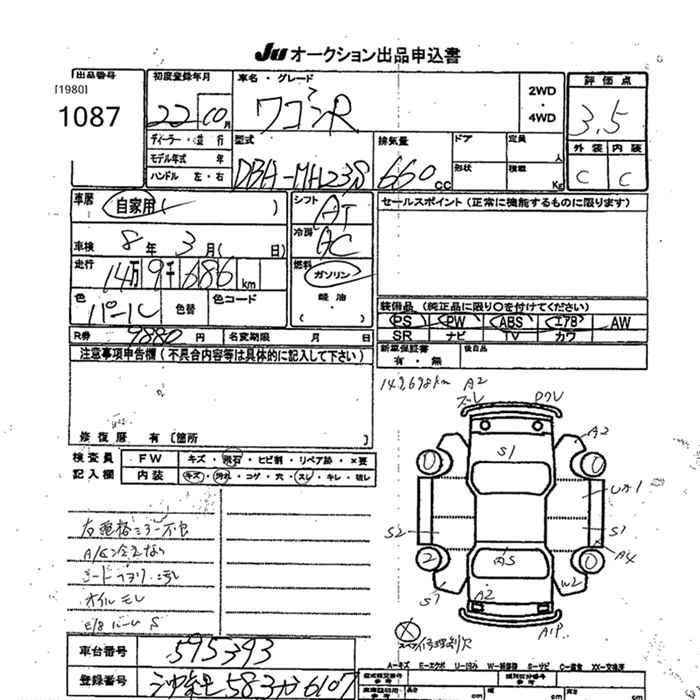 Ju オークション出品申込書
出品番号
[1980]
1087
初度登録年月
22 10月
車名・グレード
ワゴンR
2WD
・
4WD
評価点
3.5
外装 内装
C C
ディーラー・並行
モデル年式 年
ハンドル 左・右
型式
DBA-MH23S
排気量
660 CC
ドア
定員
人
形状
積載
Kg
車歴
自家用( )
車検 8年 3月( 日)
走行
14万9千686km
色
パール
色替
色コード
シフト
AT
冷房
AC
燃料
ガソリン
軽油
( )
セールスポイント (正常に機能するものに限ります)
装備品 (純正品に限り〇を付けてください)
PS PW ABS エアB AW
SR ナビ TV カワ
新車保証書
有・無
後日品
R券 9880円
名変期限 月 日
注意事項申告欄(不具合内容等は具体的に記入して下さい)
修復歴 有 [箇所 ]
149,698km A2
ズレ ワレ
検査員
記入欄
FW キズ・飛石・ヒビ割・リペア跡・×要
内装 キズ・汚れ・コゲ・穴・スレ・キレ・破レ
右電格ミラー不良
A/C冷えない
オイルモレ
A2
S1
S2
S1
A4
W2
S1
A2
車台番号 595393
登録番号 583 6107
A-キズ E-エクボ U-凹み W-補修跡 S-サビ C-腐食 XX-交換済